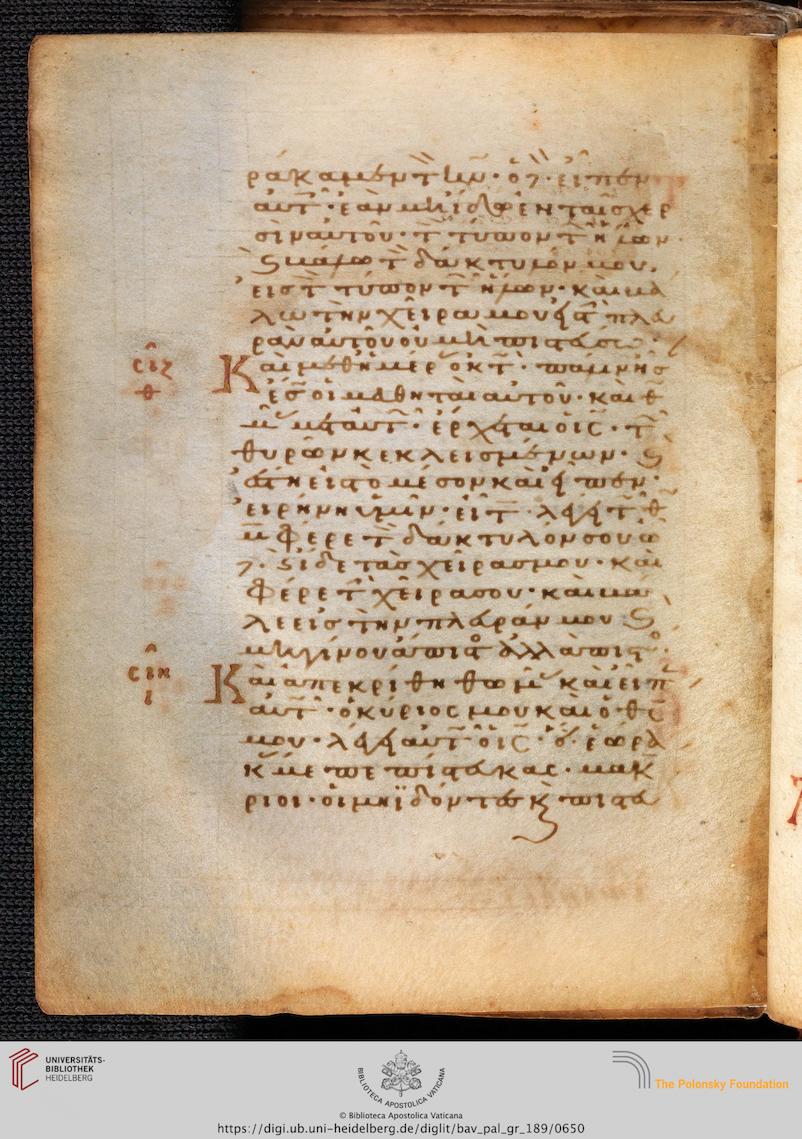 ράκαμεν τὸν κν̄· ὁ δὲ εἶπεν
αὐτ· ἐὰν μὴ ἴδω ἐν ταῖς χερ
σὶν αὐτοῦ· τ τύπον τ ἥλων·
εἰς τ τύπον τ ἥλων· καὶ βά
λω τὴν χεῖρα μου εἰς τ πλευ
ρὰν αὐτοῦ οὐ μὴ πιστεύσω·
σιζ
θ
Και μεθ ημερ οκτ· παλιν ησ
ἔσω οἱ μαθηταὶ αὐτοῦ· καὶ θω
μ μετ αὐτ· ἔρχεται ὁ ις· τ
θυρῶν κεκλεισμένων· κ
ἔστη εἰς τὸ μέσον καὶ εἶπεν·
εἰρήνη ὑμῖν· εἶτ λέγει τ θω
μ φέρε τ δάκτυλόν σου ὧ
δε κ ἴδε τὰς χεῖρας μου· καὶ
φέρε τ χεῖρα σου· καὶ βά
λε εἰς τὴν πλευράν μου κ
μὴ γίνου ἄπιστος ἀλλὰ πιστος·
σιη
ι
Και απεκρίθη θωμ καὶ εἶπ
αὐτ· ὁ κύριος μου καὶ ὁ θς
μου· λέγει αὐτ ὁ ις· ὅτι ἑώρα
κ με πεπίστευκας· μακ
ριοι· οἱ μὴ ϊδόντες κ πιστευ
UNIVERSITÄTS-
BIBLIOTHEK
HEIDELBERG
BIBLIOTHECA APOSTOLICA VATICANA
The Polonsky Foundation
© Biblioteca Apostolica Vaticana
https://digi.ub.uni-heidelberg.de/diglit/bav_pal_gr_189/0650